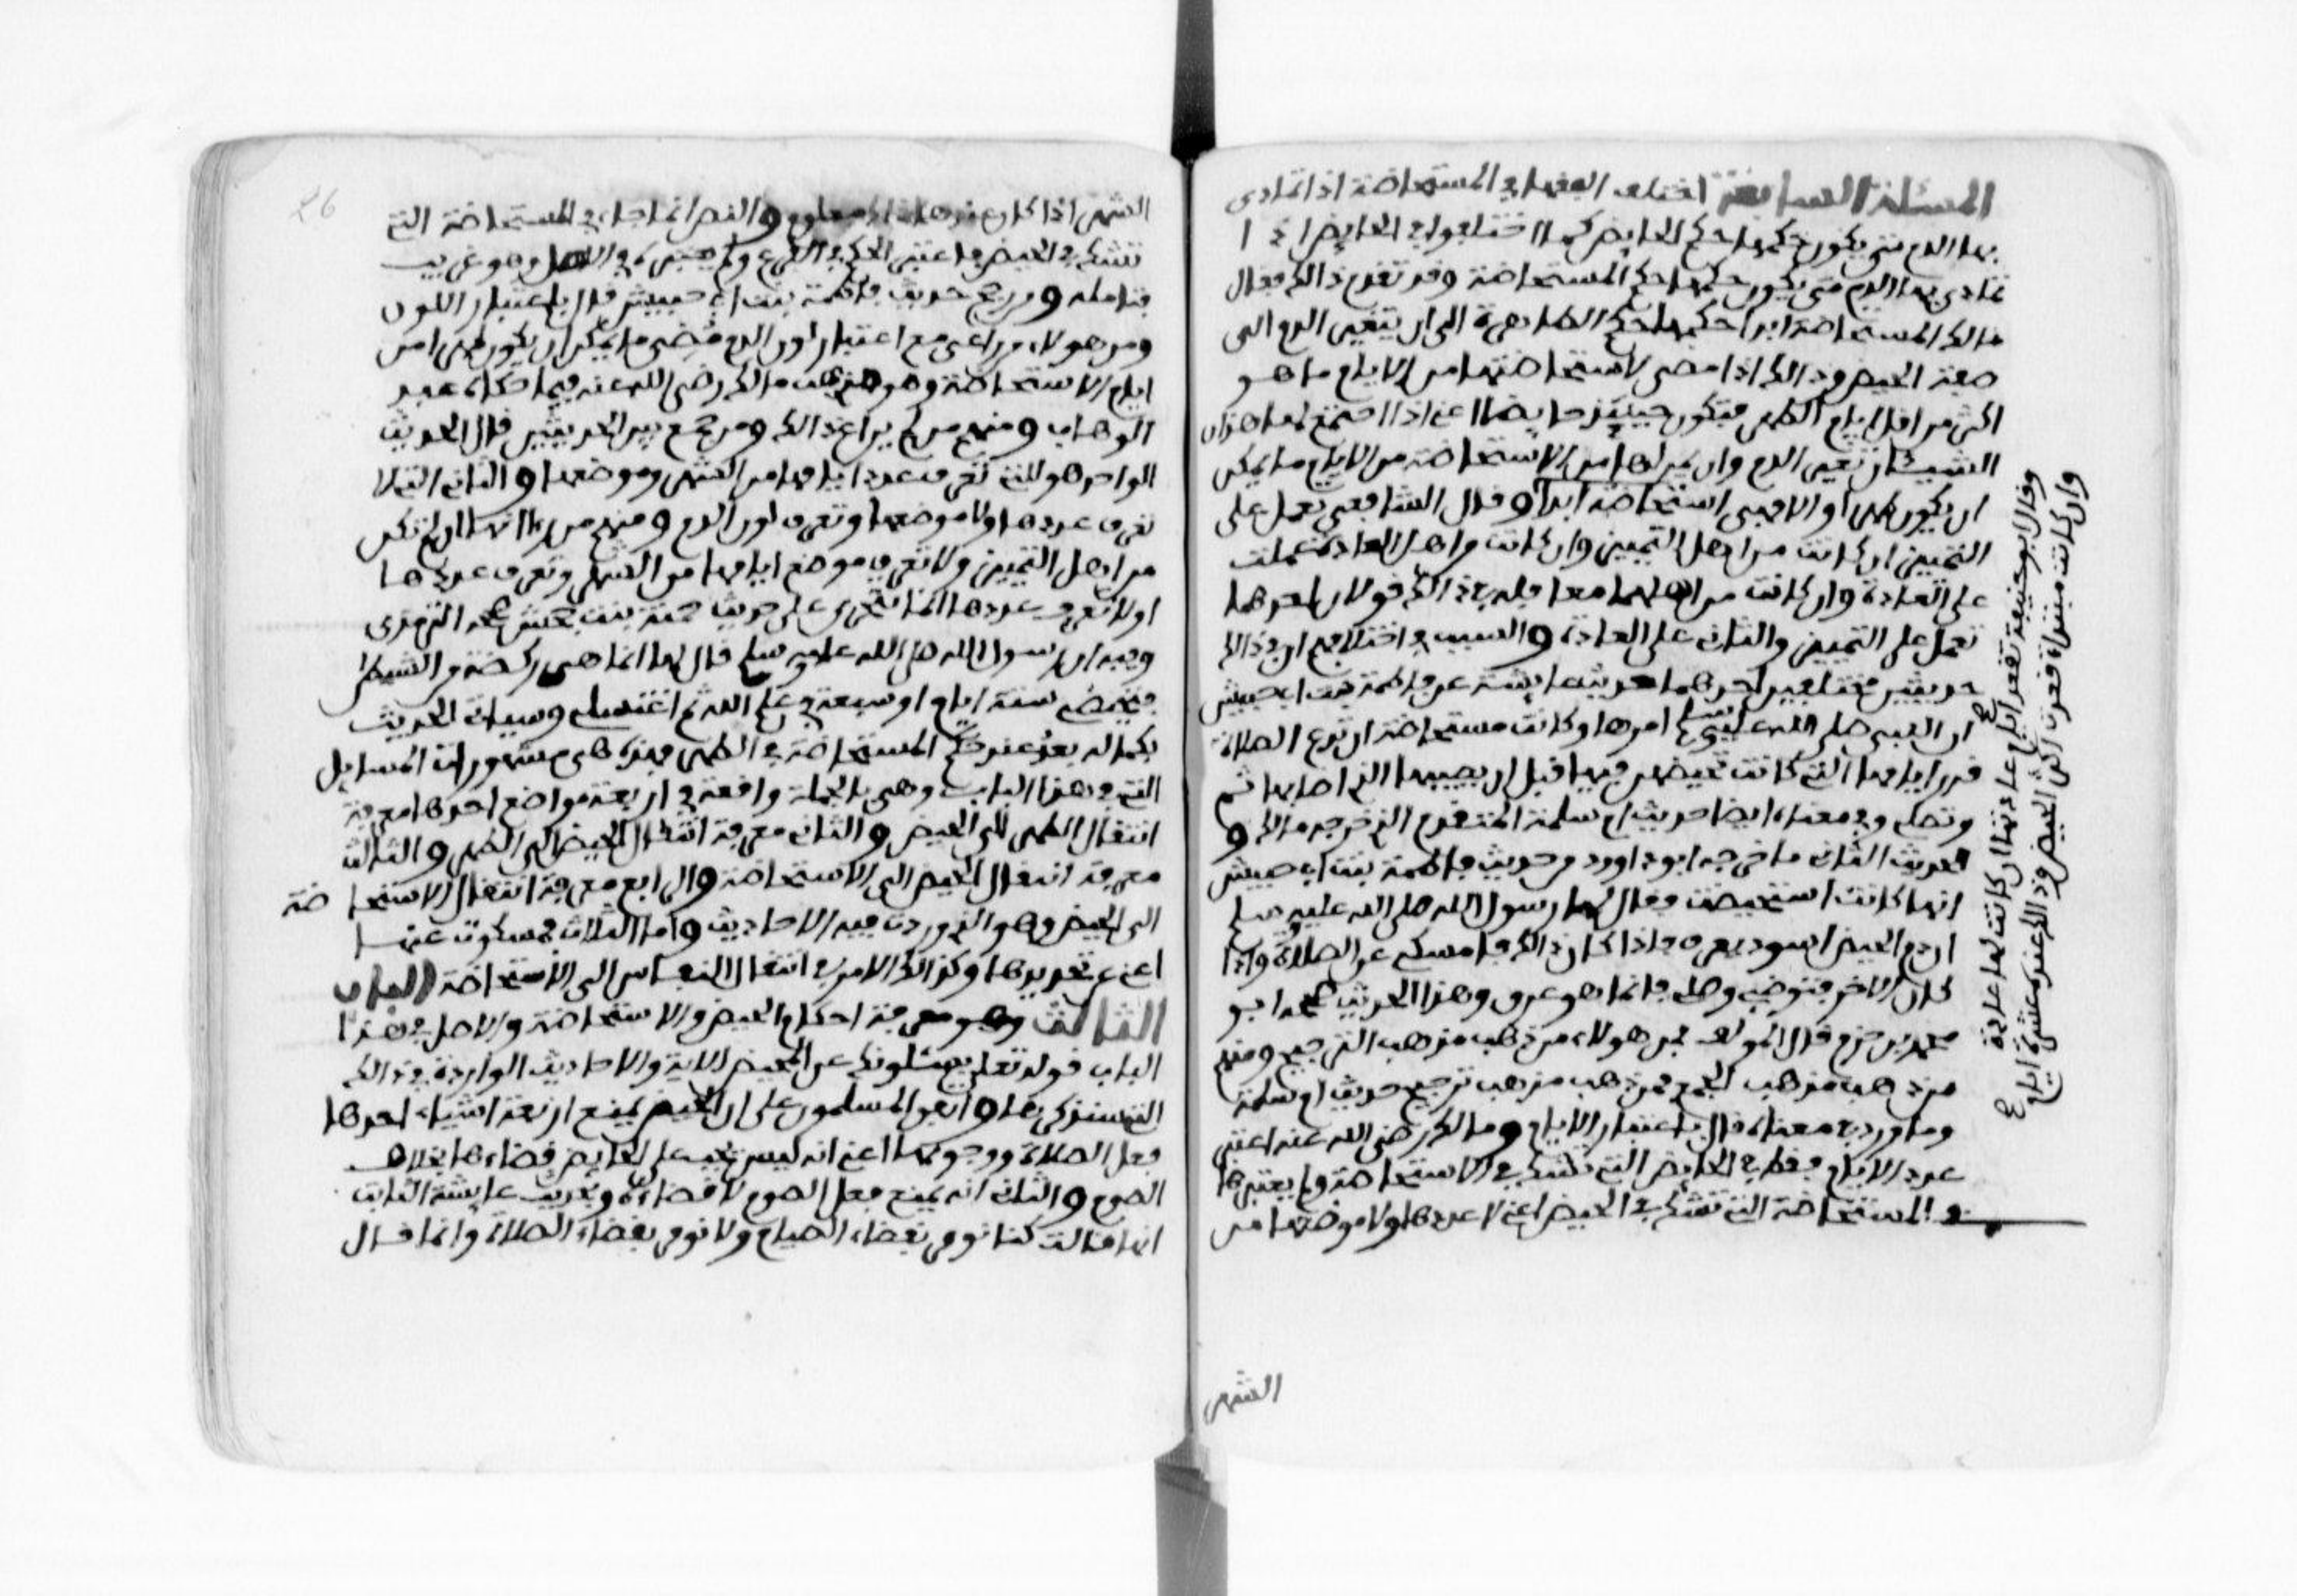 المسئلة السابعة اختلف الفقهاء في المستحاضة اذا تمادى
بها الدم متى يكون حكمها حكم الحايض كما اختلفوا في الحايض اذا
تمادى بها الدم متى يكون حكمها حكم المستحاضة وقد تقدم ذالك فقال
مالك المستحاضة ابدا حكمها حكم الطاهرة الى ان يتغير الدم الى
صفة الحيض وذالك اذا مضى لاستحاضتها من الايام ما هو
اكثر من اقل ايام الطهر فتكون حينئذ حايضا اعني اذا اجتمع لها هذان
الشيئان تغير الدم وان يمر لها من الاستحاضة من الايام ما يمكن
ان يكون طهرا والا فهي استحاضة ابدا وقال الشافعي تعمل على
التمييز ان كانت من اهل التمييز وان كانت من اهل العادة عملت
على العادة وان كانت من اهلهما معا فله في ذالك قولان احدهما
تعمل على التمييز والثاني على العادة والسبب في اختلافهم ان في ذالك
حديثين مختلفين احدهما حديث عايشة عن فاطمة بنت ابي حبيش
ان النبي صلى الله عليه وسلم امرها وكانت مستحاضة ان تدع الصلاة
قدر ايامها التي كانت تحيض فيها قبل ان يصيبها الذي اصابها ثم
وتصلي وفي معناه ايضا حديث ام سلمة المتقدم الذي خرجه مالك و
الحديث الثاني ما خرجه ابو داوود من حديث فاطمة بنت ابي حبيش
انها كانت استحيضت فقال لها رسول الله صلى الله عليه وسلم
ان دم الحيض اسود يعرف فاذا كان ذالك فامسكي عن الصلاة واذا
كان الاخر فتوضي وصلي فانما هو عرق وهذا الحديث صححه ابو
محمد بن حزم قال المولف فمن هولاء من ذهب مذهب الترجيح ومنهم
من ذهب مذهب الجمع فمن ذهب مذهب ترجيح حديث ام سلمة
وما ورد في معناه قال باعتبار الايام ومالك رضي الله عنه اعتبر
عدد الايام فقط في الحايض التي تشك في الاستحاضة ولم يعتبرها
في المستحاضة التي تشك في الحيض اعني لا عددها ولا موضعها من
الشهر
وقال ابو حنيفة تقعد ايام عادتها ان كانت لها عادة
وان كانت مبتداة قعدت اكثر الحيض وذالك عنده عشرة ايام
الشهر اذا كان عندها ذالك معلوم والنص انما جاء في المستحاضة التي
تشك في الحيض فاعتبر الحكم في الفرع ولم يعتبره في الاصل وهو غريب
فتامله ومن رجح حديث فاطمة بنت ابي حبيش قال باعتبار اللون
ومن هولاء من راعى مع اعتبار لون الدم مضي ما يمكن ان يكون طهرا من
ايام الاستحاضة وهو مذهب مالك رضي الله عنه فيما حكاه عبد
الوهاب ومنهم من لم يراع ذالك ومن جمع بين الحديثين قال الحديث
الواحد هو للتي تعرف عدد ايامها من الشهر وموضعها والثاني التي لا
تعرف عددها ولا موضعها وتعرف لون الدم ومنهم من راا انها ان لم تكن
من اهل التمييز ولا تعرف موضع ايامها من الشهر وتعرف عددها
او لا تعرف عددها انها تتحرى على حديث حمنة بنت جحش صححه الترمذى
وفيه ان رسول الله صلى الله عليه وسلم قال لها انما هي ركضة من الشيطان
فتحيضي ستة ايام او سبعة في علم الله ثم اغتسلي وسياتي الحديث
بكماله بعد عند حكم المستحاضة في الطهر فهذه هي مشهورات المسايل
التي في هذا الباب وهي بالجملة واقعة في اربعة مواضع احدها معرفة
انتقال الطهر الى الحيض والثاني معرفة انتقال الحيض الى الطهر والثالث
معرفة انتقال الحيض الى الاستحاضة والرابع معرفة انتقال الاستحاضة
الى الحيض وهو الذي وردت فيه الاحاديث واما الثلاث فمسكوت عنها
اعني عن تحديدها وكذالك الامر في انتقال النفاس الى الاستحاضة الباب
الثالث وهو معرفة احكام الحيض والاستحاضة والاصل في هذا
الباب قوله تعلى يسئلونك عن المحيض الاية والاحاديث الواردة في ذالك
التي سنذكرها واتفق المسلمون على ان الحيض يمنع اربعة اشياء احدها
فعل الصلاة ووجوبها اعني انه ليس يجب على الحايض قضاءها بخلاف
الصوم والثاني انه يمنع فعل الصوم لا قضاءه وحديث عايشة الثابت
انها قالت كنا نومر بقضاء الصيام ولا نومر بقضاء الصلاة وانما قال